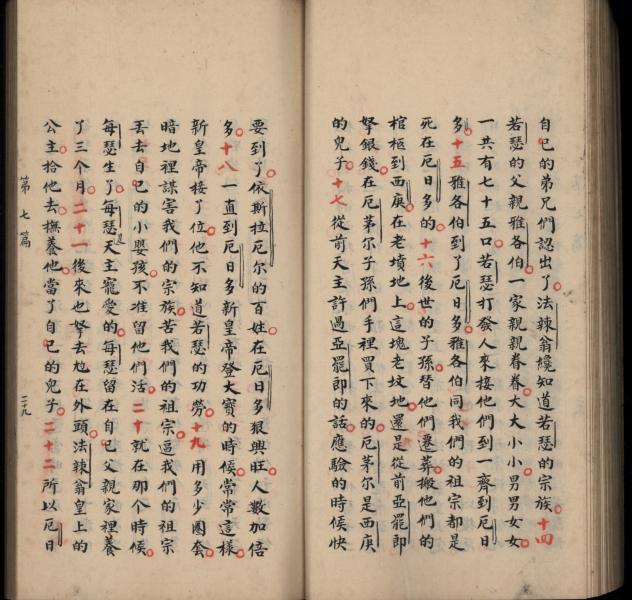 自己的弟兄們認出了法辣翁纔知道若瑟的宗族十四
若瑟的父親雅各伯一家親親眷眷大大小小男男女女
一共有七十五口若瑟打發人來接他們到一齊到厄日
多十五雅各伯到了厄日多雅各伯同我們的祖宗都是
死在厄日多的十六後世的子孫替他們遷葬搬他們的
棺柩到西庚在老墳地上這塊老坟地還是從前亞罷郎
拏銀錢在厄茅尔子孫們手裡買下來的厄茅尔是西庚
的兒子十七從前天主許過亞罷郎的話應驗的時候快
要到了依斯拉厄尔的百姓在厄日多狠興旺人數加倍
多十八一直到厄日多新皇帝登大寶的時候常常這樣
新皇帝接了位他不知道若瑟的功勞十九用多少圈套
暗地裡謀害我們的宗族苦我們的祖宗逼我們的祖宗
丟去自己的小嬰孩不准留他們活二十就在那個時候
每瑟生了每瑟是天主寵愛的每瑟留在自己父親家裡養
了三个月二十一後來也拏去尥在外頭法辣翁皇上的
公主拾他去撫養他當了自己的兒子二十二所以厄日
第七篇
二十九